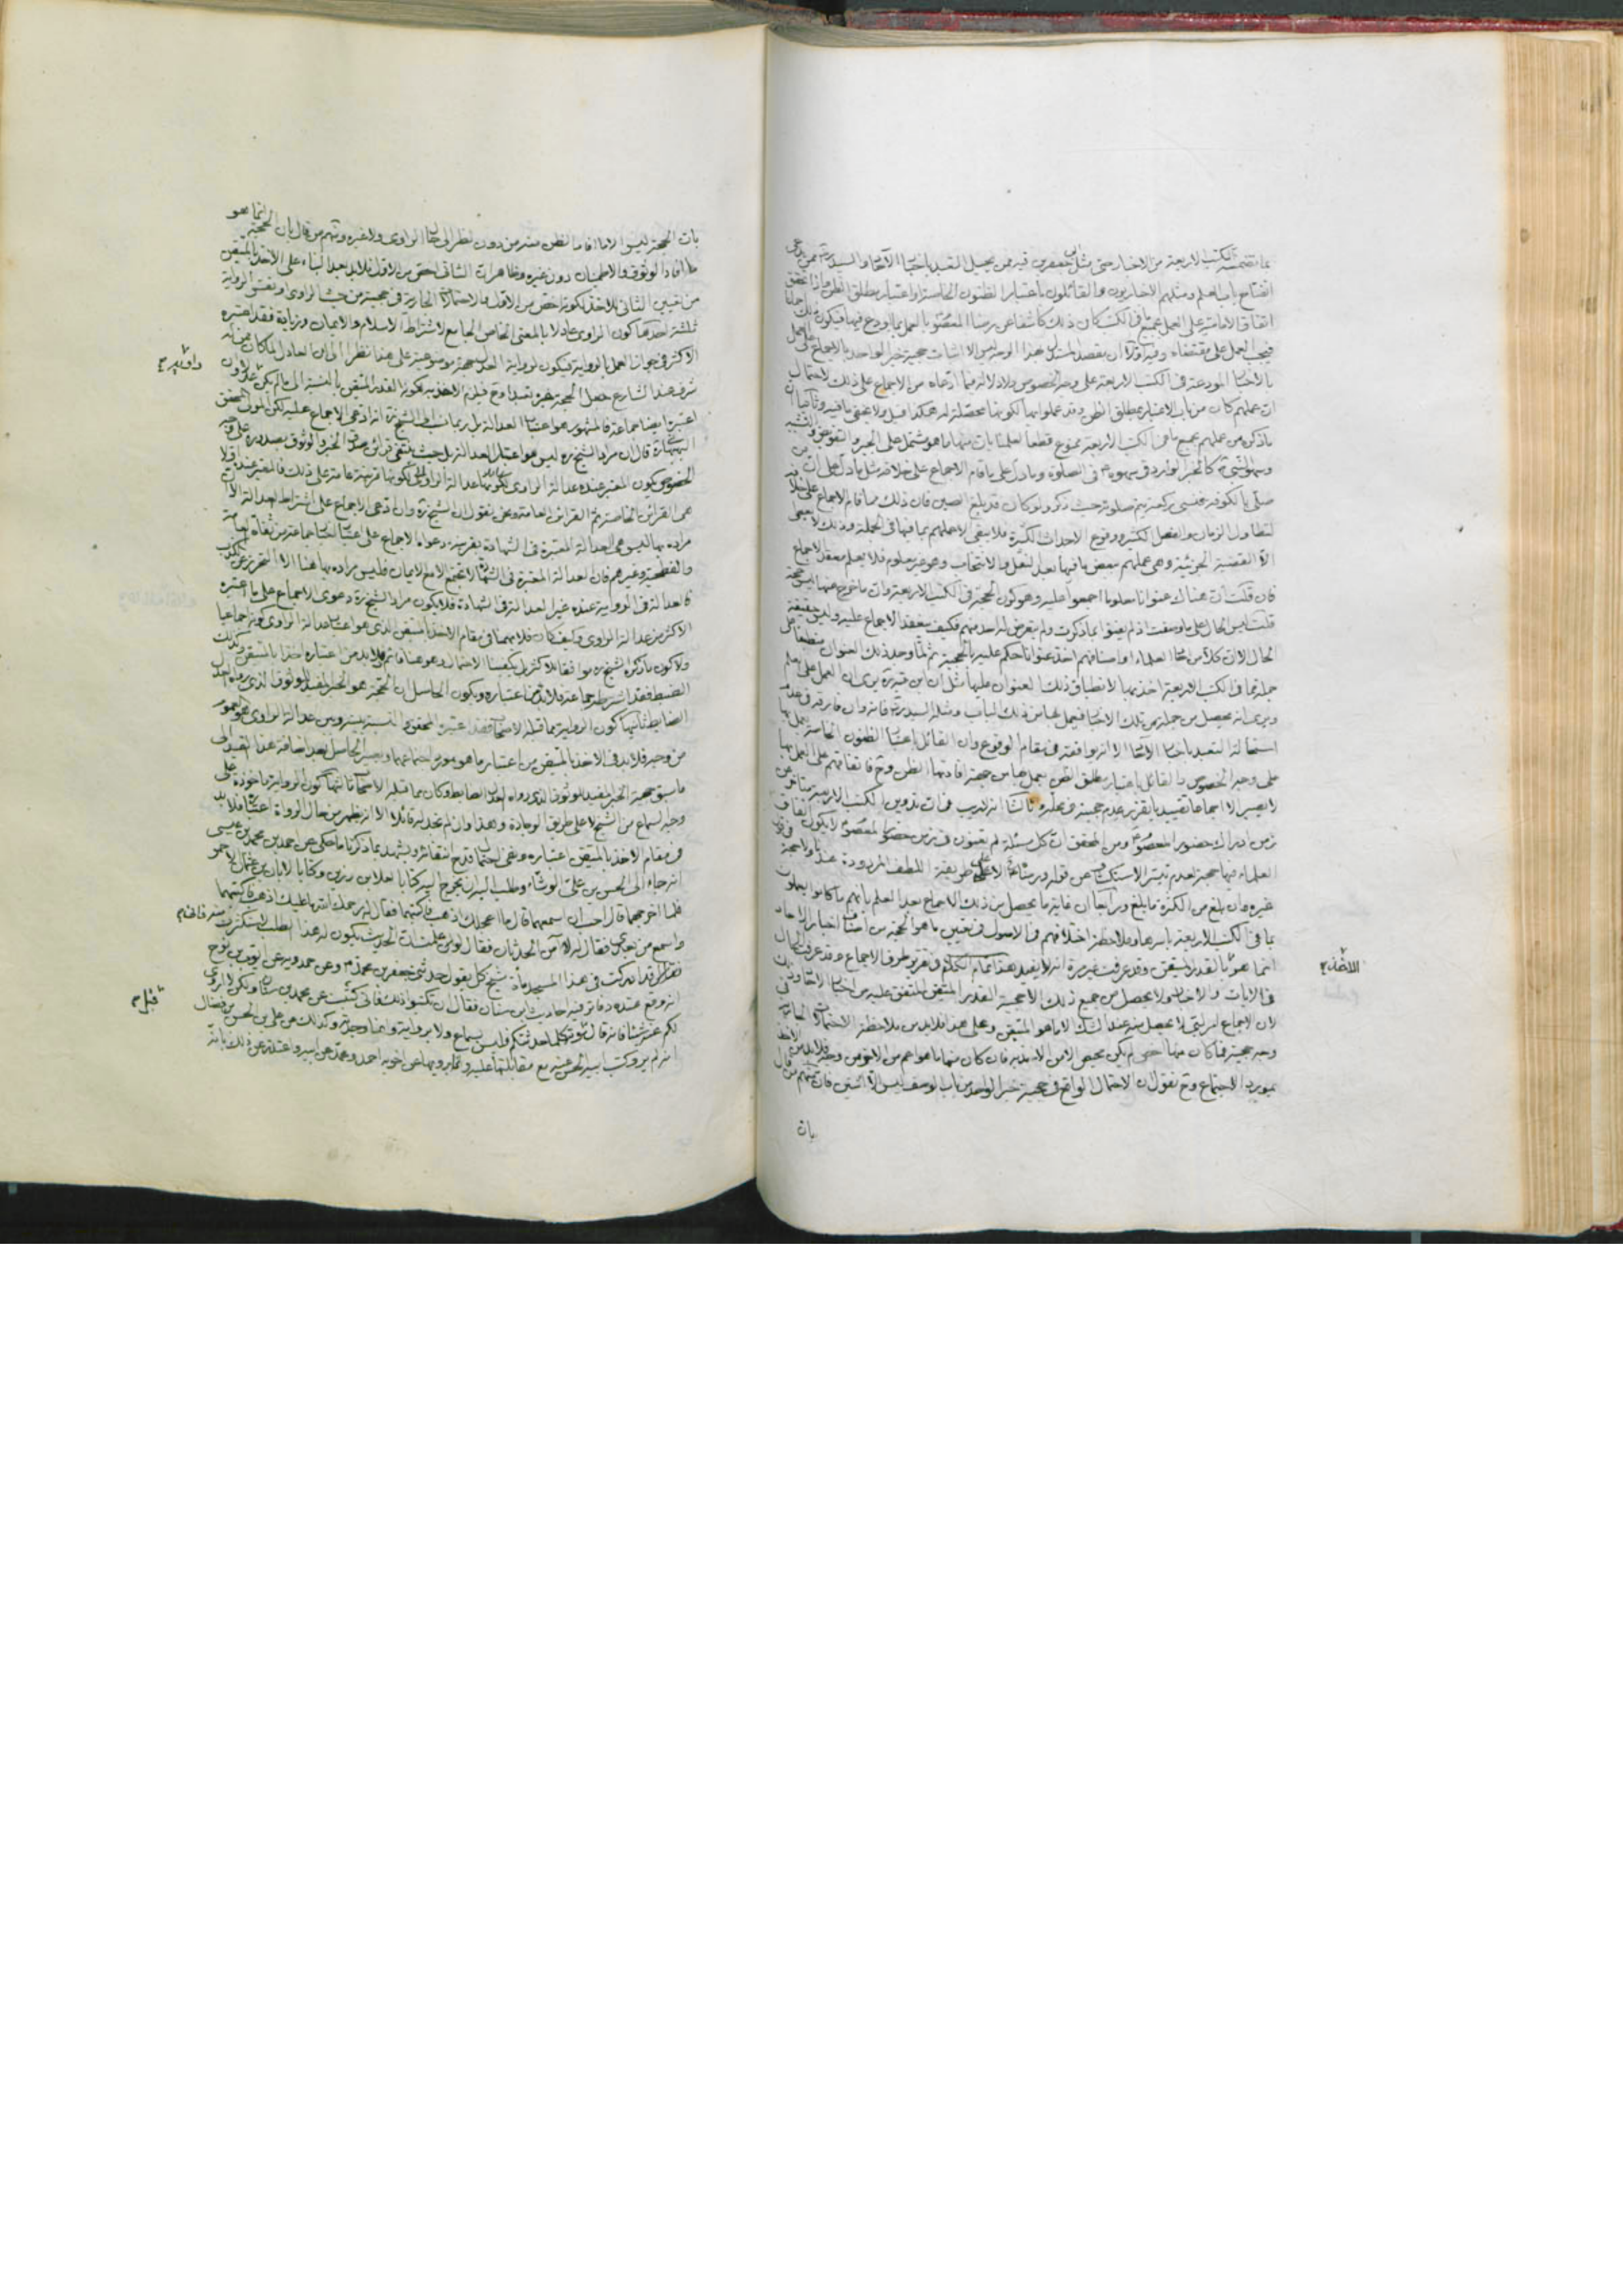 بما تضمنه الكتب الاربعة من الاخبار حتى مثل ابن قبة ممن يحيل التعبد باخبار الآحاد والسيد
انفتاح باب العلم ومنهم الاخباريون والقائلون باعتبار الظنون الخاصة او اعتبار مطلق الظن
اتفاق الامامية على العمل بجميع ما في الكتب كان ذلك كاشفا عن رضا المعصوم بالعمل بما اودع فيها فيكون
فيجب العمل على مقتضاه وفيه اولا ان مقصد المستدل بهذا الوجه ليس الا اثبات حجية خبر الواحد بالاجماع على العمل
بالاخبار المودعة في الكتب الاربعة على وجه الخصوص ولا دلالة فيما ادعاه من الاجماع على ذلك لاحتمال
ان عملهم كان من باب الاعتبار بمطلق الظن وقد عملوا بها لكونها محصلة له هكذا قيل ولا يخفى ما فيه وثانيا ان
ما ذكره من عملهم بجميع ما في الكتب الاربعة ممنوع قطعا لعلمنا بان منها ما هو مشتمل على الجبر والتفويض والتشبيه
وسهو النبي كالخبر الوارد في سهوه في الصلوة وما دل على ما قام الاجماع على خلافه مثل ما دل على ان من
صلى بالكوفة فنسي ركعة يتم صلوته حيث ذكر ولو كان قد بلغ الصين فان ذلك مما قام الاجماع على خلافه
لتطاول الزمان والفصل الكثير ووقوع الاحداث الكثيرة فلا يبقى الا عملهم بما فيها في الجملة وذلك لا يعطي
الا القضية الجزئية وهي عملهم ببعض ما فيها بعد النقل والانتخاب وهو غير معلوم فلا يعلم معقد الاجماع
فان قلت ان هناك عنوانا معلوما اجمعوا عليه وهو كون الحجة في الكتب الاربعة وان ما خرج عنها ليس حجة
قلت ليس الحال على ما وصفت اذ لم يعنونوا بما ذكرت ولم يتعرض له احد منهم فكيف ينعقد الاجماع عليه ولب حقيقة
الحال ان كلا من العلماء واصنافهم اخذ عنوانا حكم عليه بالحجية ثم لما وجد ذلك العنوان منطبقا على
جملة مما في الكتب الاربعة اخذ بها لانطباق ذلك العنوان عليها مثل ان ابن قبة يرى ان العمل على العلم
ويرى انه يحصل من جملة من تلك الاخبار فيعمل بها من ذلك الباب ومثله السيد فانه وان فارقه في عدم
استحالة التعبد باخبار الآحاد الا انه يوافقه في مقام الوقوع وان القائل باعتبار الظنون الخاصة يعمل بها
على وجه الخصوص والقائل باعتبار مطلق الظن يعمل بها من جهة افادتها الظن وح فاتفاقهم على العمل بها
لا يصير الا اجماعا تقييديا تقرر عدم حجيته في محله وثالثا انه لا ريب في ان تدوين الكتب الاربعة متأخر عن
زمن ادراك حضور المعصوم ومن المحقق ان كل مسئلة لم تعنون في زمن حضور المعصوم لا يكون اتفاق
العلماء فيها حجة لعدم تيسر الاستكشاف عن قوله ورضاه الا على طريقة اللطف المردودة عندنا ولا حجة في قول
غيره وان بلغ من الكثرة ما بلغ ورابعا ان غاية ما يحصل من ذلك الاجماع بعد العلم بانهم ما كانوا يعملون
بما في الكتب الاربعة باسرها وملاحظة اختلافهم في الاصول في تعيين ما هو الحجة من اصناف اخبار الآحاد
انما هو القدر المتيقن وقد عرفت غير مرة انه لا يفيد هذا تمام الكلام في تقرير طرق الاجماع وقد عرفت الحال
في الايات والاخبار ولا يحصل من جميع ذلك الا حجية القدر المتيقن المتفق عليه من اخبار الآحاد وذلك
لان الاجماع امر لبي لا يحصل منه عند الشك الا ما هو المتيقن وعلى هذا فلا بد من ملاحظة الاحتمالات الجارية في
وجه حجيته فما كان منها اخص لم يكن محيص الا من الاخذ به فان كان منها ما هو اعم من الاخر من وجه فلا بد من الاخذ
بمورد الاجتماع وح نقول ان الاحتمال الواقع في حجية خبر الواحد من باب الوصف ليس الا اثنين فان منهم من قال
بان
بان الحجة ليس الا ما افاد الظن منه من دون نظر الى حال الراوي ولا غيره ومنهم من قال بان الحجة انما هو
ما افاد الوثوق والاطمينان دون غيره وظاهر ان الثاني اخص من الاول فلا بد بعد البناء على الاخذ بالمتيقن
من تعيين الثاني للاخذ لكونه اخص من الاول والاحتمالات الجارية في حجيته من حيث الراوي او نفس الرواية
ثلثة احدها كون الراوي عادلا بالمعنى الخاص الجامع لاشتراط الاسلام والايمان وزيادة فقد اعتبره
الاكثر في جواز العمل بالرواية فيكون لرواية العدل جهة موضوعية على هذا نظرا الى ان العادل لمكان ممن له
شرف عند الشارع جعل الحجة خبره تعبدا وح فيلزم الاخذ به لكونه القدر المتيقن بالنسبة الى ما لم يكن عدلا وان
اعتبره ايضا جماعة فالمشهور هو اعتبار العدالة بل ربما نسب الى الشيخ انه ادعى الاجماع عليه لكن المولى المحقق
البهبهاني قال ان مراد الشيخ ليس هو اعتبار العدالة بل حيث ينتفي قرائن صدق الخبر والوثوق بصدوره على وجه
الخصوص يكون المعتبر عنده عدالة الراوي لكونها قرينة عامة على ذلك فالمعتبر عنده اولا
هي القرائن الخاصة ثم القرائن العامة ونحن نقول ان الشيخ وان ادعى الاجماع على اشتراط العدالة الا ان
مراده بها ليس هي العدالة المعتبرة في الشهادة بقرينة دعواه الاجماع على اعتبار اخبار جماعة من ثقات العامة
والفطحية وغيرهم فان العدالة المعتبرة في الشهادة لا تجتمع الا مع الايمان فليس مراده بها هنا الا التحرز عن الكذب
فالعدالة في الرواية عنده غير العدالة في الشهادة فلا يكون مراد الشيخ دعوى الاجماع على ما اعتبره
الاكثر من عدالة الراوي وكيف كان فلا بد هنا في مقام الاخذ بالمتيقن الذي هو اعتبار عدالة الراوي كونه اجماعيا
ولا كون ما ذكره الشيخ موافقا للاكثر بل يكفينا الاحتمال وهو هنا قائم فلا بد من اعتباره اخذا بالمتيقن وكذلك
الضبط فقد اشترطه جماعة فلا بد من اعتباره ويكون الحاصل ان الحجة هو الخبر المفيد للوثوق الذي رواه العدل
الضابط ثانيها كون الرواية مما قبله الاصحاب فقد اعتبره المحقق والنسبة بينه وبين عدالة الراوي هو العموم
من وجه فلا بد في الاخذ بالمتيقن من اعتبار ما هو مورد اجتماعهما ويصير الحاصل بعد اضافة هذا القيد الى
ما سبق حجية الخبر المفيد للوثوق الذي رواه العدل الضابط وكان مما قبله الاصحاب ثالثها كون الرواية ماخوذة على
وجه السماع من الشيخ لا على طريق الوجادة وهذا وان لم نجد له قائلا الا انه يظهر من حال الرواة اعتباره فلا بد
في مقام الاخذ بالمتيقن اعتباره ونفي احتمال قدح انتفائه ويشهد بما ذكرنا ما حكي عن احمد بن محمد بن عيسى
انه جاء الى الحسن بن علي الوشاء وطلب اليه ان يخرج اليه كتابا لعلاء بن رزين وكتابا لابان بن عثمان الاحمر
فلما اخرجهما قال احب ان اسمعهما قال ما اعجلك اذهب فاكتبهما فقال له رحمك الله ما عليك اذهب فاكتبهما
واسمع من بعدي فقال له لا آمن الحدثان فقال لو علمت ان الحديث يكون له هذا الطلب لاستكثرت منه فاني
قد ادركت في هذا المسجد مأة شيخ كل يقول حدثني جعفر بن محمد وعن حمدويه عن ايوب بن نوح
انه وقع عنده دفاتر فيه احاديث ابن سنان فقال ان تكتبوا ذلك فاني كتبت عن محمد بن سنان ولكن لا اروي
لكم عنه شيئا فانه قال قبل موته كلما حدثتكم فليس بسماع ولا برواية وانما وجدته وكذلك عن علي بن الحسن بن فضال
انه لم يرو كتب ابيه الحسن عنه مع مقابلتها عليه وانما يرويها عن اخويه احمد ومحمد عن ابيه واعتذر عن ذلك بانه